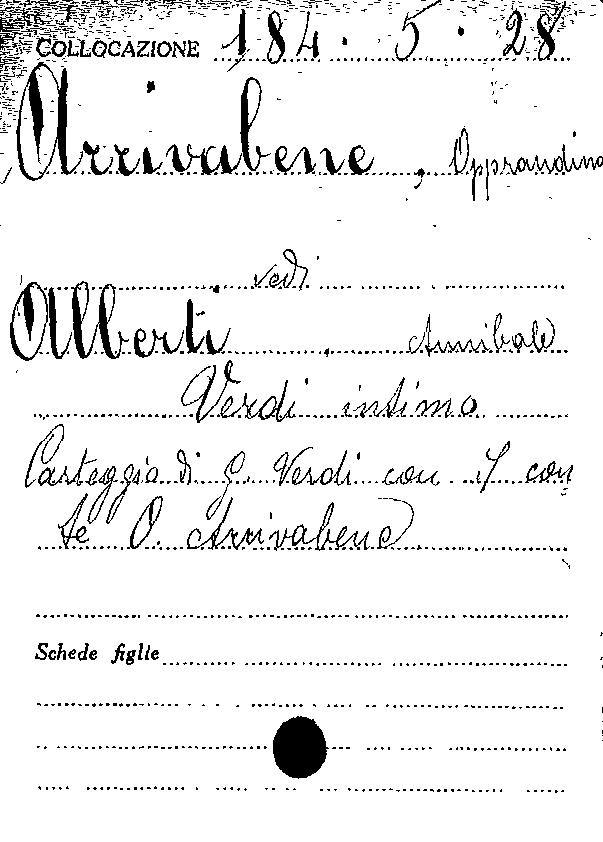 COLLOCAZIONE 184. 5. 28
Arrivabene, Opprandino
vedi
Alberti, Annibale
Verdi intimo
Carteggio di G. Verdi con il con
te O. Arrivabene
Schede figlie